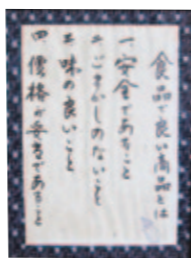 食品で良い商品とは
一、安全であること
二、ごまかしのないこと
三、味の良いこと
四、価格が妥当であること